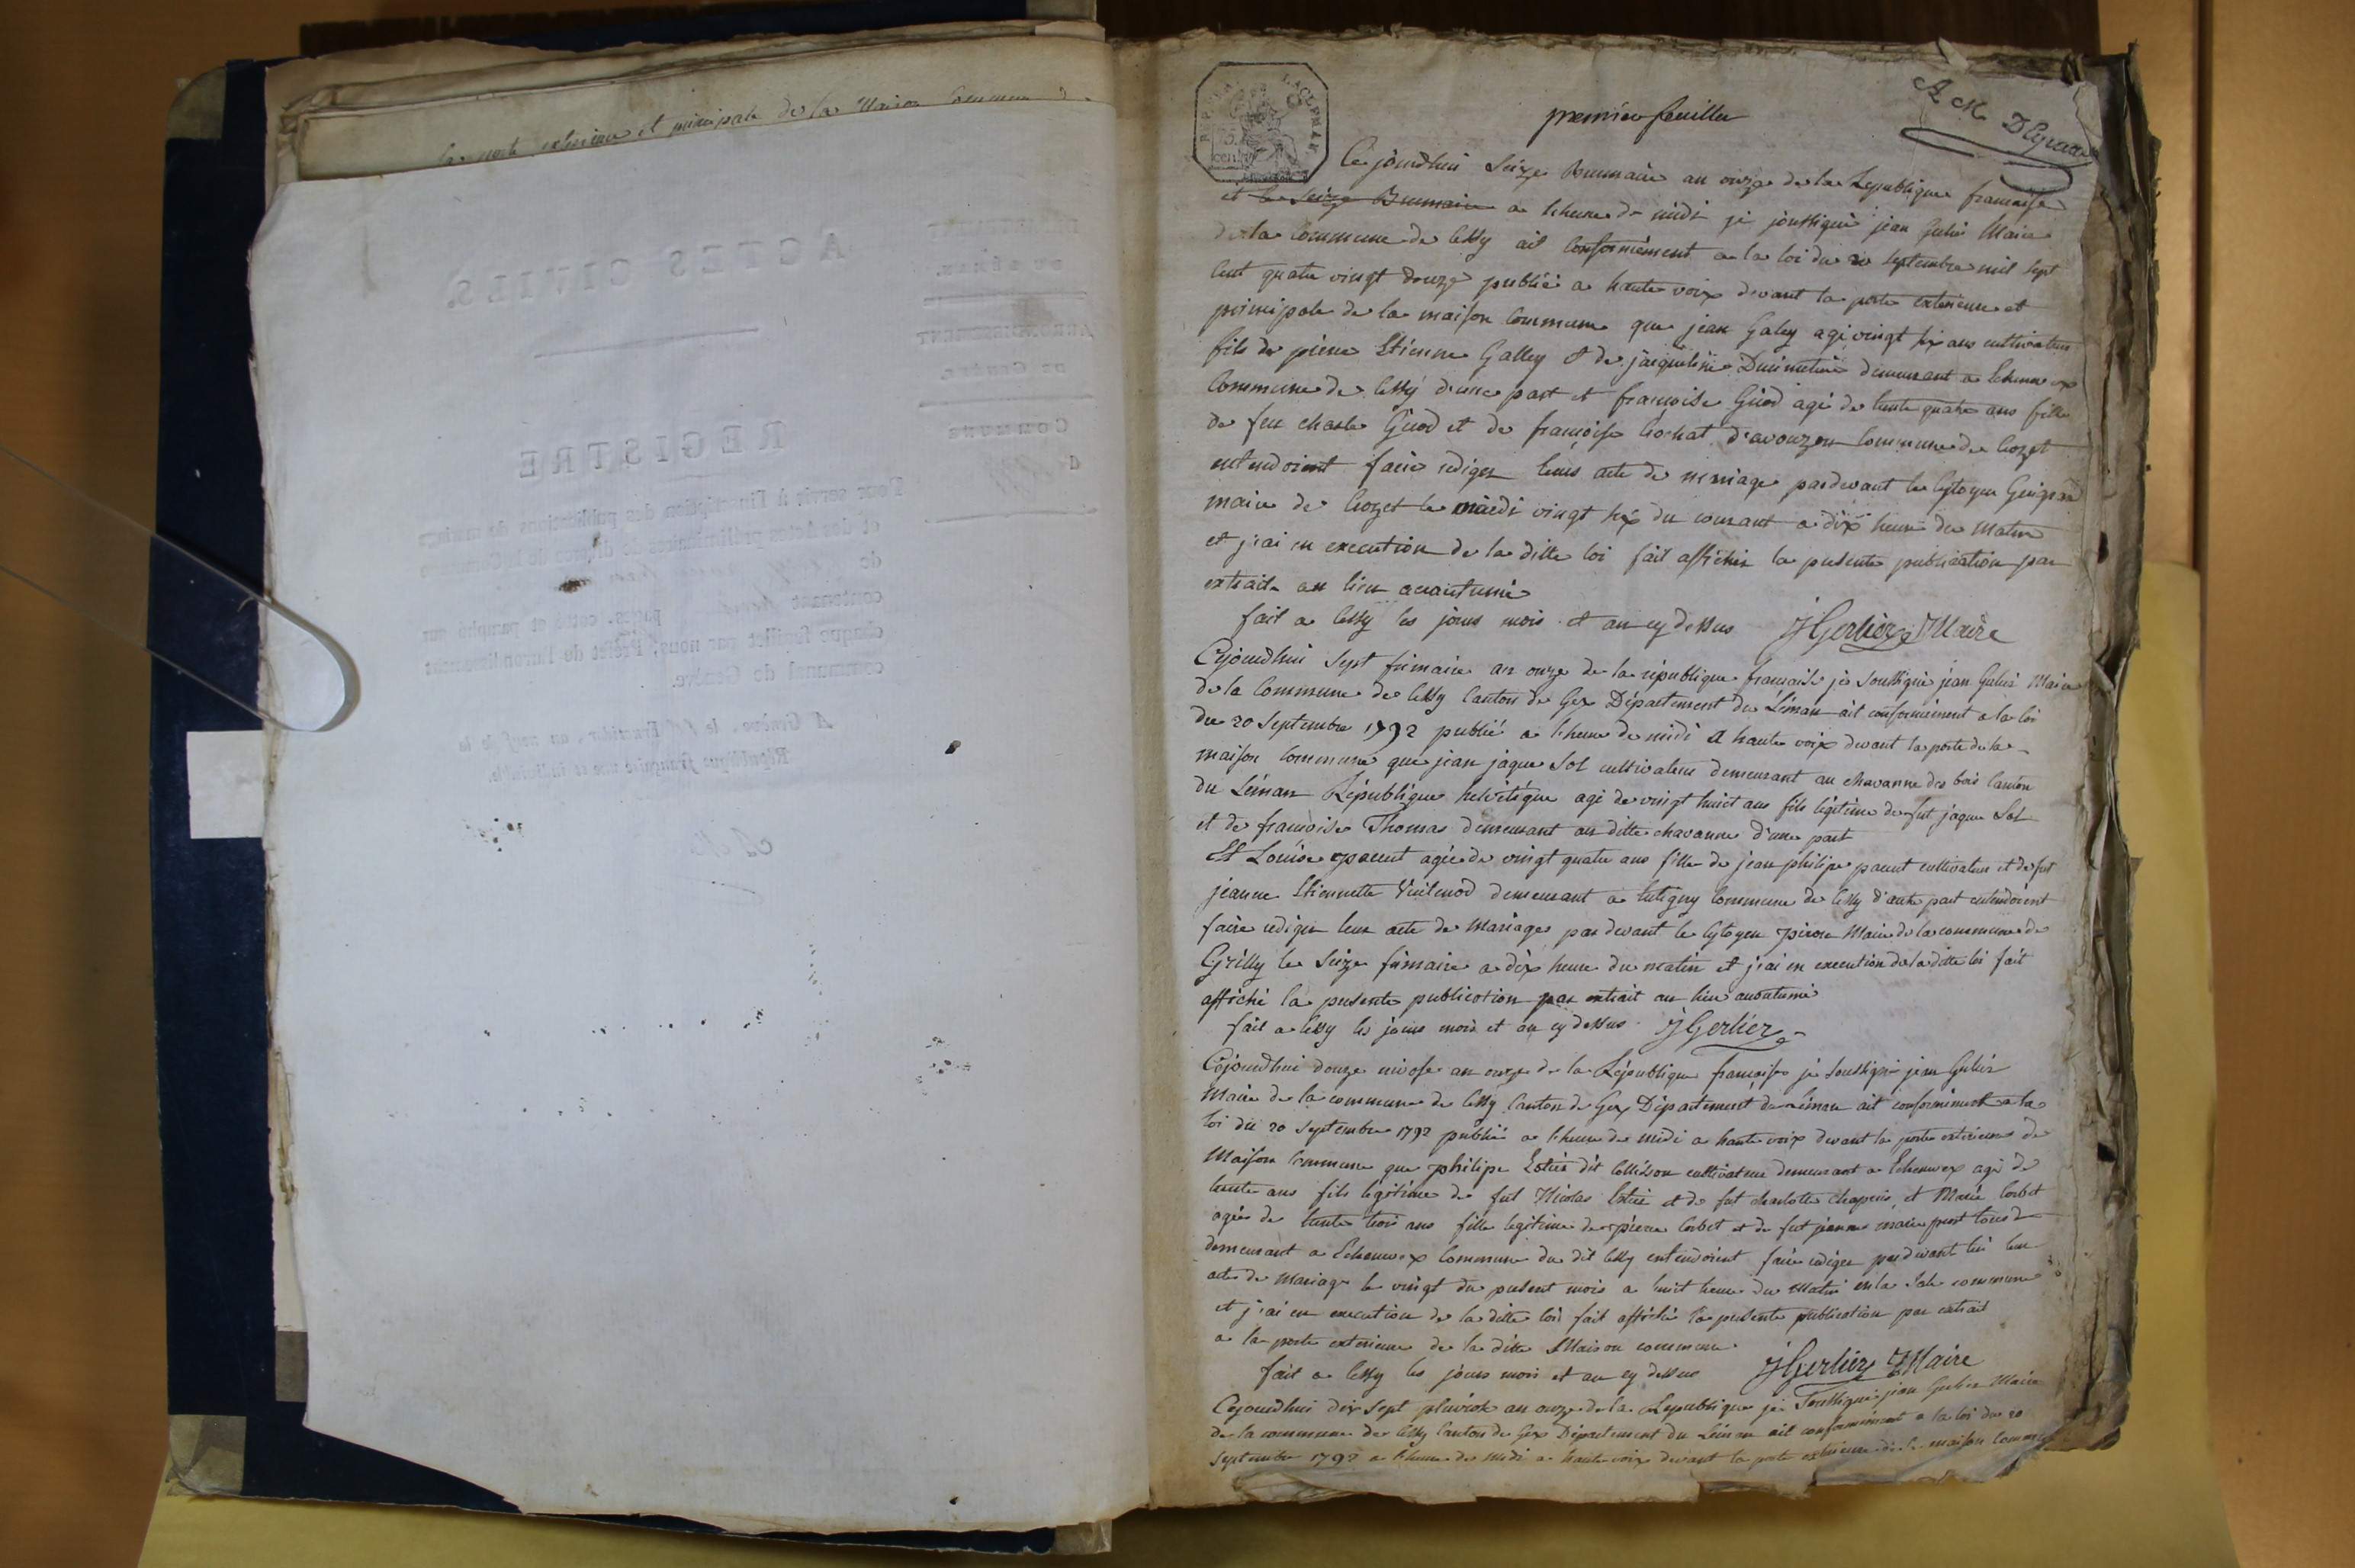 la porte exterieure et principale de la Maison Commune
ACTES CIVILS.
ARRONDISSEMENT
DE Genève.
COMMUNE
REGISTRE
Pour servir à l'inscription des publications de mariage
et des actes préliminaires de
de
contenant pages, cotté et paraphé sur
chaque feuillet par nous, Préfet de l'arrondissement
communal de Genève.
A Genève, le Fructidor, an neuf de la
République française une et indivisible.
premier feuillet
Ce jourdhui seize Brumaire an onze de la Republique francaise
et le seize Brumaire a lheure de midi je soussigné jean Gerlier Maire
de la Commune de Cessy ait Conformement a la loi du 20 septembre mil sept
Cent quatre vingt douze publié a haute voix devant la porte exterieure et
principale de la maison Commune que jean Galey agé vingt six ans cultivateur
fils de pierre Etienne Galley & de jaqueline demeurant a Echenevex
Commune de Cessy d'une part et francoise Girod agé de trente quatre ans fille
de feu charle Girod et de francoise d'avouzon Commune de Crozet
entendoient faire rediger leurs acte de mariage pardevant le Cytoyen
maire de Crozet le vingt six du courant a dix heure du matin
et j'ai en execution de la ditte loi fait afficher la presente publication par
extrait au lieu acoutumé
fait a Cessy les jours mois et an cy dessus JGerlier Maire
Cejourdhui sept frimaire an onze de la république francaise je soussigné jean Gerlier Maire
de la Commune de Cessy Canton de Gex Département du Léman ait conformément a la loi
du 20 Septembre 1792 publié a lheure de midi a haute voix devant la porte de la
maison Commune que jean jaque Sol cultivateur demeurant au chavanne des bois Canton
du Léman République helvétique agé de vingt huict ans fils légitime de fut jaque Sol
et de francoise Thomas demeurant au ditte chavanne d'une part
Et Louise parent agée de vingt quatre ans fille de jean philipe parent cultivateur et de fut
jeanne Etiennette Vuilenod demeurant a Commune de Cessy d'autre part entendoient
faire rediger leur acte de Mariage par devant le Cytoyen Maire de la commune de
Grilly le Seize frimaire a dix heure du matin et j'ai en execution de la ditte loi fait
affiché la presente publication par extrait au lieu acoutumé
fait a Cessy les jours mois et an cy dessus JGerlier
Cejourdhui douze nivose an onze de la République francaise je soussigné jean Gerlier
Maire de la commune de Cessy Canton de Gex Département du Léman ait conformément a la
loi du 20 septembre 1792 publié a lheure de midi a haute voix devant la porte exterieure de
Maison Commune que philipe dit Collisson cultivateur demeurant a Echenevex agé de
trente ans fils légitime de fut Nicolas et de fut charlotte chapuis et Marie Corbet
agée de trente trois ans fille legitime de pierre Corbet et de fut jeanne marie tous d
demeurant a Echenevex Commune du dit Cessy entendoient faire rediger pardevant lui leur
acte de Mariage le vingt du present mois a huit heure du Matin en la Sale commune
et j'ai en execution de la ditte loi fait affiché la presente publication par extrait
a la porte exterieure de la ditte Maison commune
fait a Cessy les jours mois et an cy dessus JGerlier Maire
Cejourdhui dix sept pluviose an onze de la Republique je Soussigné jean Gerlier Maire
de la commune de Cessy Canton de Gex Département du Léman ait conformément a la loi du 20
septembre 1792 a lheure de Midi a haute voix devant la porte exterieure de la maison Commune